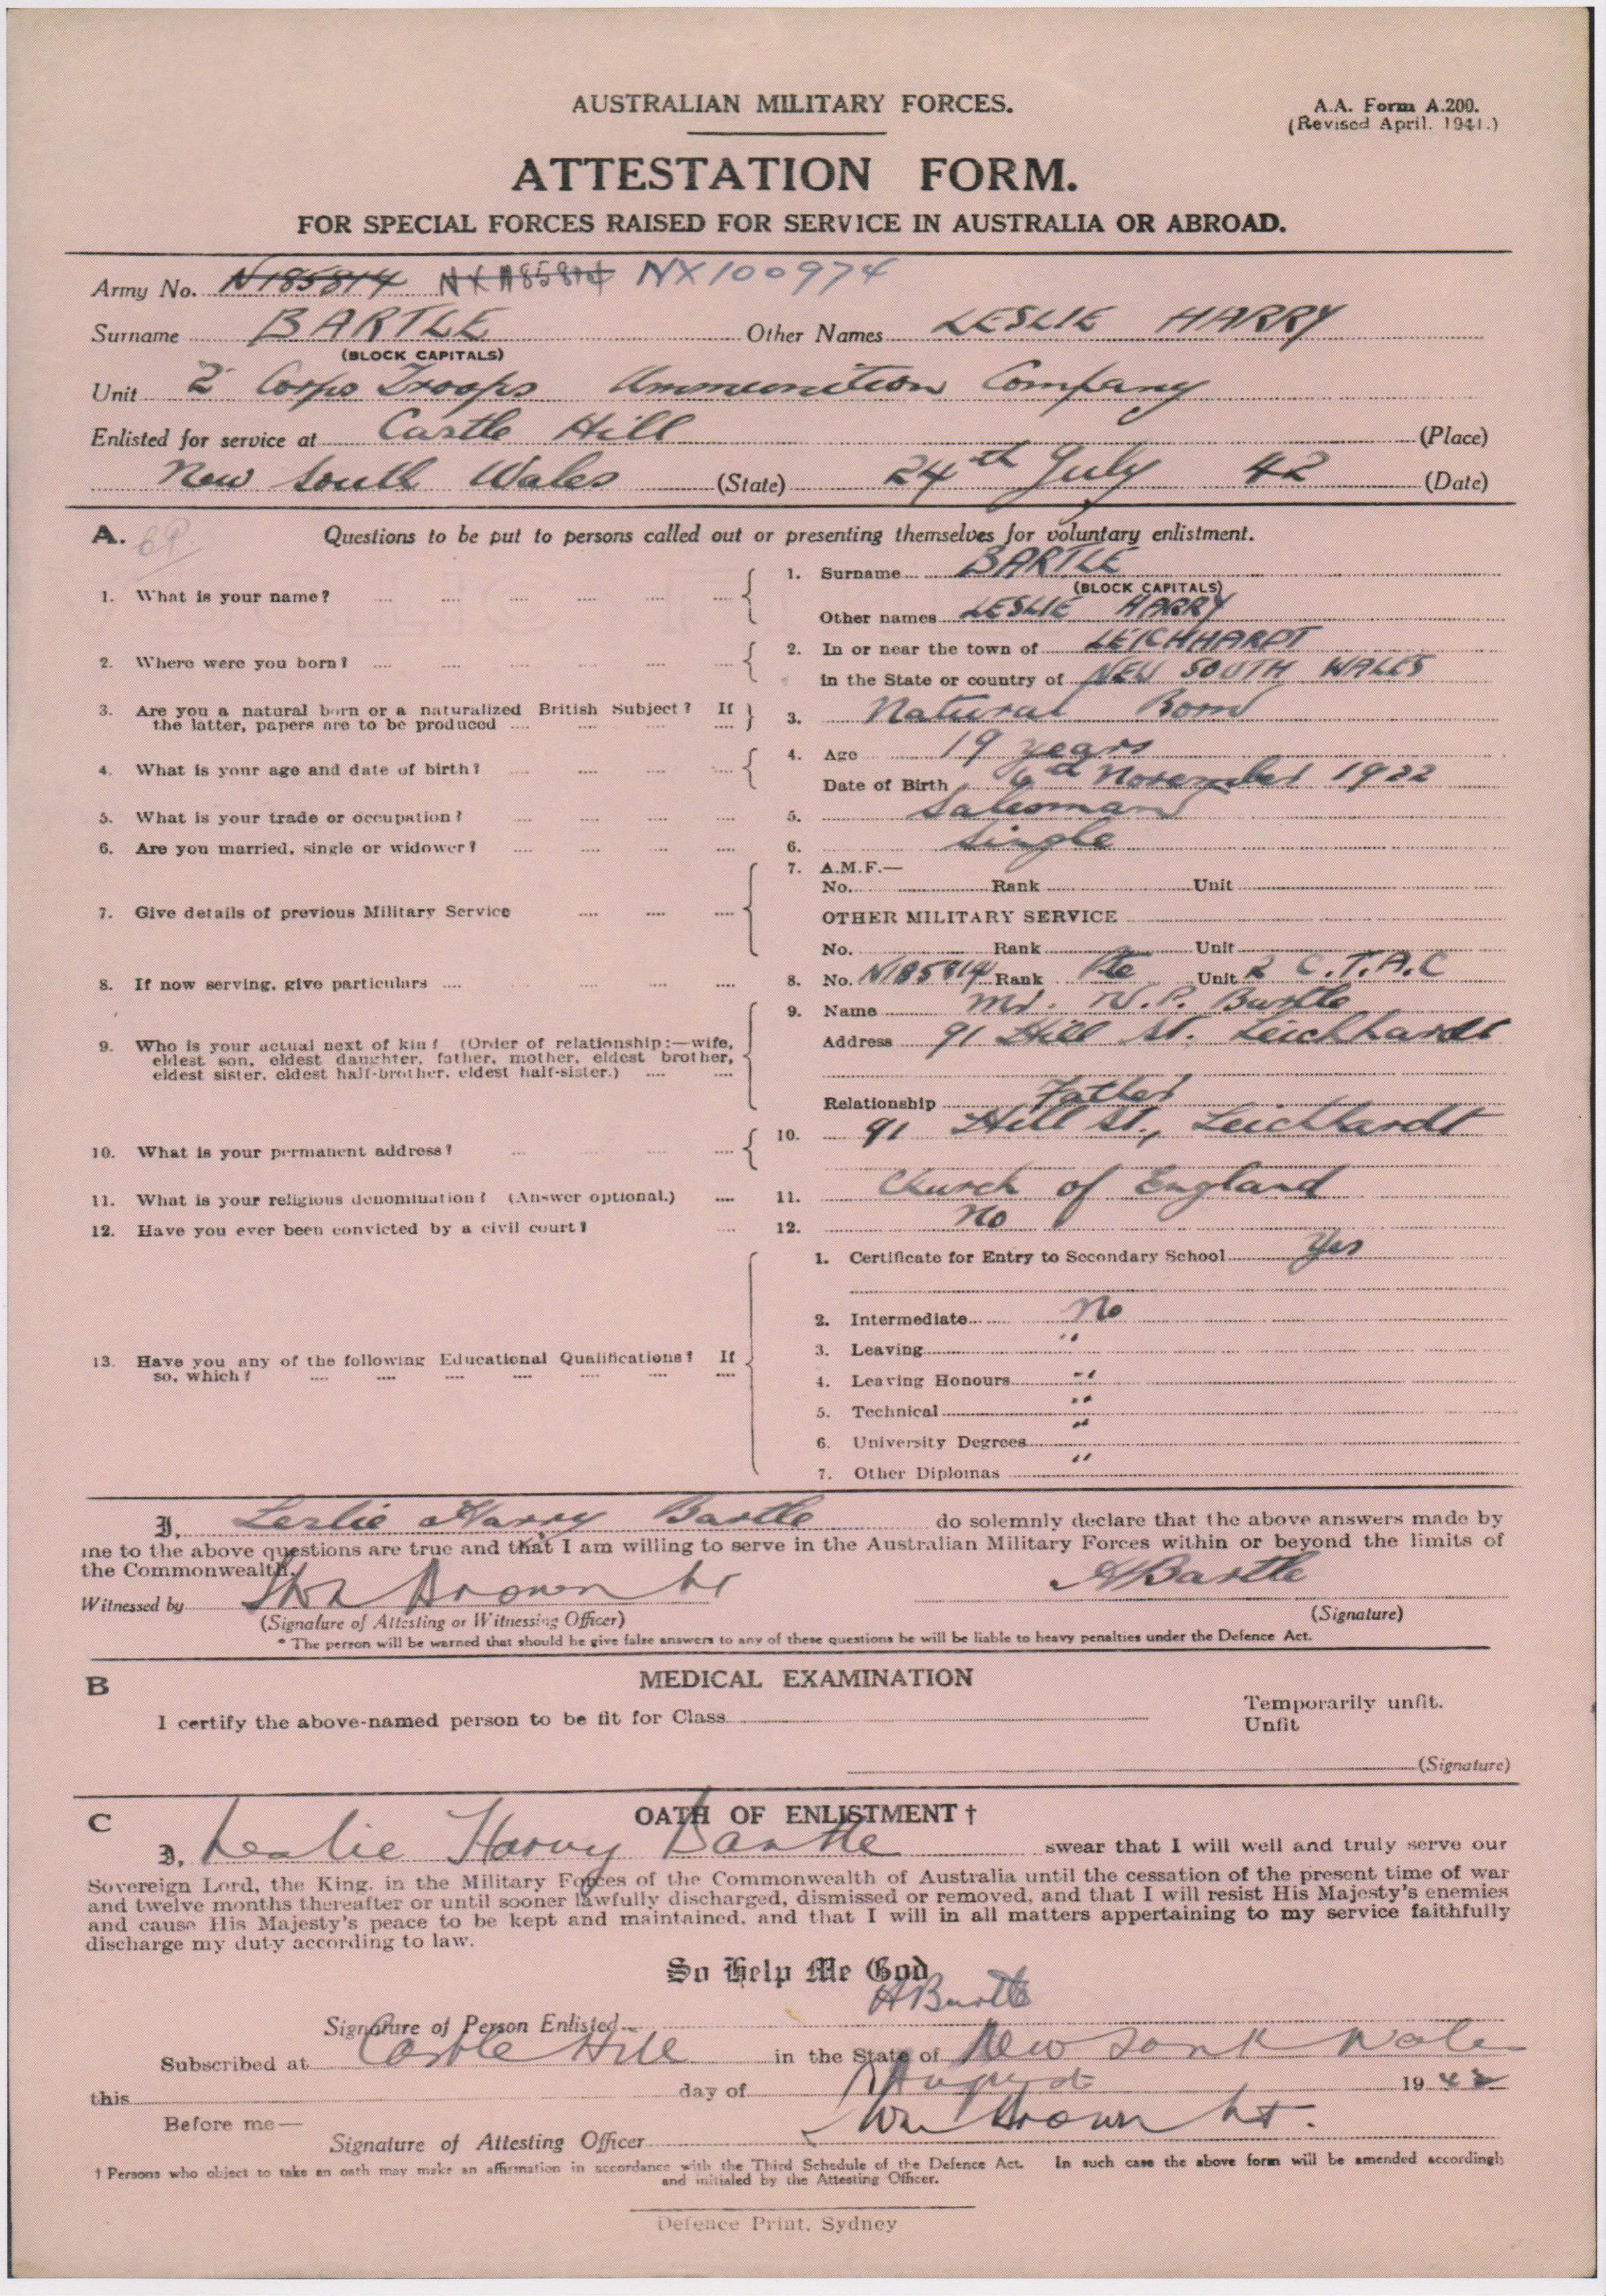 AUSTRALIAN MILITARY FORCES.
A.A. Form A.200.
(Revised April. 1941.)
ATTESTATION FORM.
FOR SPECIAL FORCES RAISED FOR SERVICE IN AUSTRALIA OR ABROAD.
Army No. N185814 NX185814 NX100974
Surname BARTLE Other Names LESLIE HARRY
(BLOCK CAPITALS)
Unit 2 Corps Troops Ammunition Company
Enlisted for service at Castle Hill (Place)
New South Wales (State) 24th July 42 (Date)
A.
Questions to be put to persons called out or presenting themselves for voluntary enlistment.
1. What is your name? 1. Surname BARTLE
(BLOCK CAPITALS)
Other names LESLIE HARRY
2. Where were you born? 2. In or near the town of LEICHHARDT
in the State or country of NEW SOUTH WALES
3. Are you a natural born or a naturalized British Subject? If
the latter, papers are to be produced 3. Natural Born
4. What is your age and date of birth? 4. Age 19 years
Date of Birth November 1922
5. What is your trade or occupation? 5. Salesman
6. Are you married, single or widower? 6. Single
7. Give details of previous Military Service 7. A.M.F.—
No. Rank Unit
OTHER MILITARY SERVICE
No. Rank Unit
8. If now serving, give particulars 8. No. N185814 Rank Pte Unit 2 C.T.A.C
9. Who is your actual next of kin? (Order of relationship:—wife,
eldest son, eldest daughter, father, mother, eldest brother,
eldest sister, eldest half-brother, eldest half-sister.)
9. Name Mr. W.P. Bartle
Address 91 Hill St. Leichhardt
Relationship Father
10. What is your permanent address? 10. 91 Hill St., Leichhardt
11. What is your religious denomination? (Answer optional.) 11. Church of England
12. Have you ever been convicted by a civil court? 12. No
13. Have you any of the following Educational Qualifications? If
so, which?
1. Certificate for Entry to Secondary School Yes
2. Intermediate No
3. Leaving "
4. Leaving Honours "
5. Technical "
6. University Degrees "
7. Other Diplomas "
I, Leslie Harry Bartle do solemnly declare that the above answers made by
me to the above questions are true and that I am willing to serve in the Australian Military Forces within or beyond the limits of
the Commonwealth.
Witnessed by Brown Lt
(Signature of Attesting or Witnessing Officer)
Bartle
(Signature)
* The person will be warned that should he give false answers to any of these questions he will be liable to heavy penalties under the Defence Act.
B
MEDICAL EXAMINATION
I certify the above-named person to be fit for Class
Temporarily unfit.
Unfit
(Signature)
C
OATH OF ENLISTMENT †
I, Leslie Harry Bartle swear that I will well and truly serve our
Sovereign Lord, the King, in the Military Forces of the Commonwealth of Australia until the cessation of the present time of war
and twelve months thereafter or until sooner lawfully discharged, dismissed or removed, and that I will resist His Majesty's enemies
and cause His Majesty's peace to be kept and maintained, and that I will in all matters appertaining to my service faithfully
discharge my duty according to law.
So Help Me God
Signature of Person Enlisted Bartle
Subscribed at Castle Hill in the State of New South Wales
this day of August 1942
Before me—
Signature of Attesting Officer Brown Lt.
† Persons who object to take an oath may make an affirmation in accordance with the Third Schedule of the Defence Act. In such case the above form will be amended accordingly
and initialed by the Attesting Officer.
Defence Print, Sydney